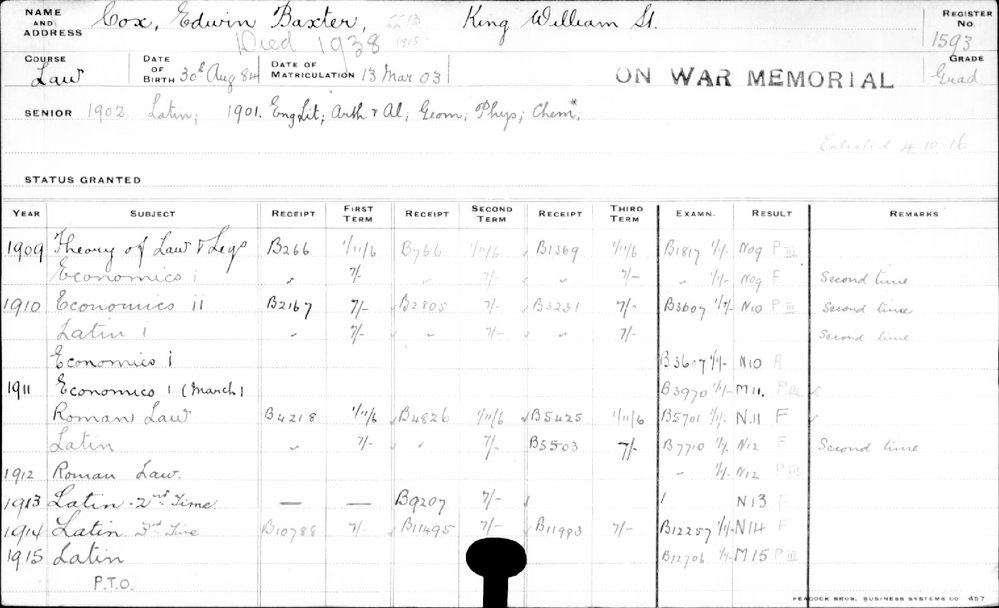 NAME AND ADDRESS Cox, Edwin Baxter, LLB 1915 King William St. REGISTER No. 1593
Died 1938
COURSE Law DATE OF BIRTH 30th Aug 84 DATE OF MATRICULATION 13 Mar 03 ON WAR MEMORIAL GRADE Grad
SENIOR 1902. Latin; 1901. Eng Lit; Arith & Al; Geom; Phys; Chem*.
Enlisted 4.10.16
STATUS GRANTED
YEAR SUBJECT RECEIPT FIRST TERM RECEIPT SECOND TERM RECEIPT THIRD TERM EXAMN. RESULT REMARKS
1909 Theory of Law & Legn B266 1/11/6 B766 1/11/6 B1369 1/11/6 B1817 1/1/- N09 P III
Economics i " 7/- " 7/- " 7/- " 1/1/- N09 F Second time
1910 Economics ii B2167 7/- B2805 7/- B3231 7/- B3607 1/1/- N10 P III Second time
Latin 1 " 7/- " 7/- " 7/- Second time
Economics i B3607 1/1/- N10 A
1911 Economics 1 (March) B3970 1/1/- M11. P III
Roman Law B4218 1/11/6 B4826 1/11/6 B5425 1/11/6 B5701 1/1/- N.11 F
Latin " 7/- " 7/- B5503 7/- B7710 1/1/- N12 F Second time
1912 Roman Law. " 1/1/- N12 P III
1913 Latin 2nd Time — — B9207 7/- N13 F
1914 Latin 3rd Time B10788 7/- B11495 7/- B11993 7/- B12257 1/1/- N14 F
1915 Latin B12706 1/1/- M15 P III
P.T.O.
PEACOCK BROS. BUSINESS SYSTEMS CO 457